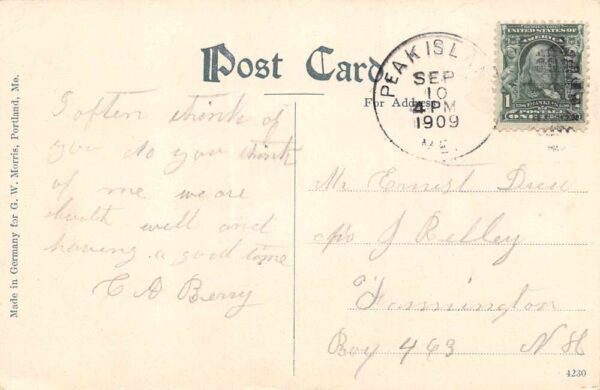 Post Card
For Address
PEAK ISLAND
SEP
10
4 PM
1909
ME.
SERIES 1902
UNITED STATES OF
AMERICA
FRANKLIN
POSTAGE
1 ONE
I often think of
you do you think
of me we are
both well and
having a good time
C A Berry
Mr Ernest Drew
c/o J Kelley
Farmington
Box 463 N H
Made in Germany for G. W. Morris, Portland, Me.
4230